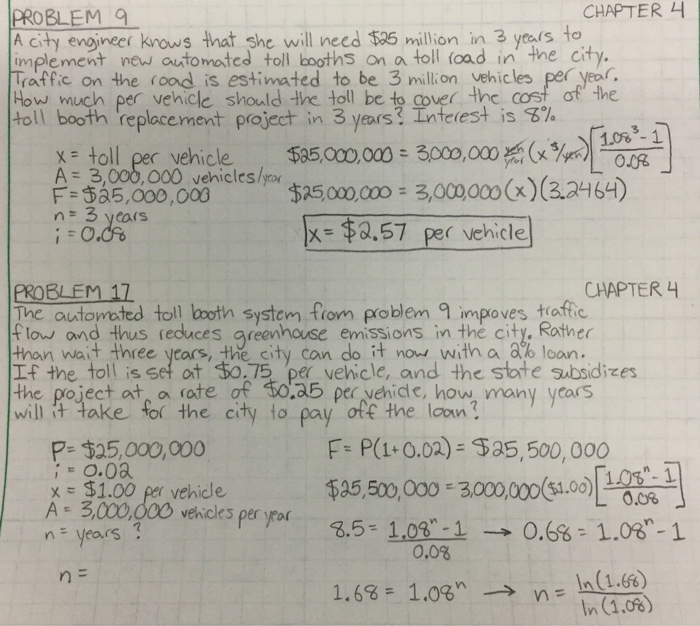 PROBLEM 9 CHAPTER 4
A city engineer knows that she will need $25 million in 3 years to
implement new automated toll booths on a toll road in the city.
Traffic on the road is estimated to be 3 million vehicles per year.
How much per vehicle should the toll be to cover the cost of the
toll booth replacement project in 3 years? Interest is 8%
x = toll per vehicle
A = 3,000,000 vehicles/year
F = $25,000,000
n = 3 years
i = 0.08
$25,000,000 = 3,000,000 (x $/year) [(1.08³ - 1)/0.08]
$25,000,000 = 3,000,000 (x)(3.2464)
x = $2.57 per vehicle
PROBLEM 17 CHAPTER 4
The automated toll booth system from problem 9 improves traffic
flow and thus reduces greenhouse emissions in the city. Rather
than wait three years, the city can do it now with a 2% loan.
If the toll is set at $0.75 per vehicle, and the state subsidizes
the project at a rate of $0.25 per vehicle, how many years
will it take for the city to pay off the loan?
P = $25,000,000
i = 0.02
x = $1.00 per vehicle
A = 3,000,000 vehicles per year
n = years ?
n =
F = P(1+0.02) = $25,500,000
$25,500,000 = 3,000,000($1.00)[(1.08ⁿ - 1)/0.08]
8.5 = (1.08ⁿ - 1)/0.08 → 0.68 = 1.08ⁿ - 1
1.68 = 1.08ⁿ → n = ln(1.68)/ln(1.08)